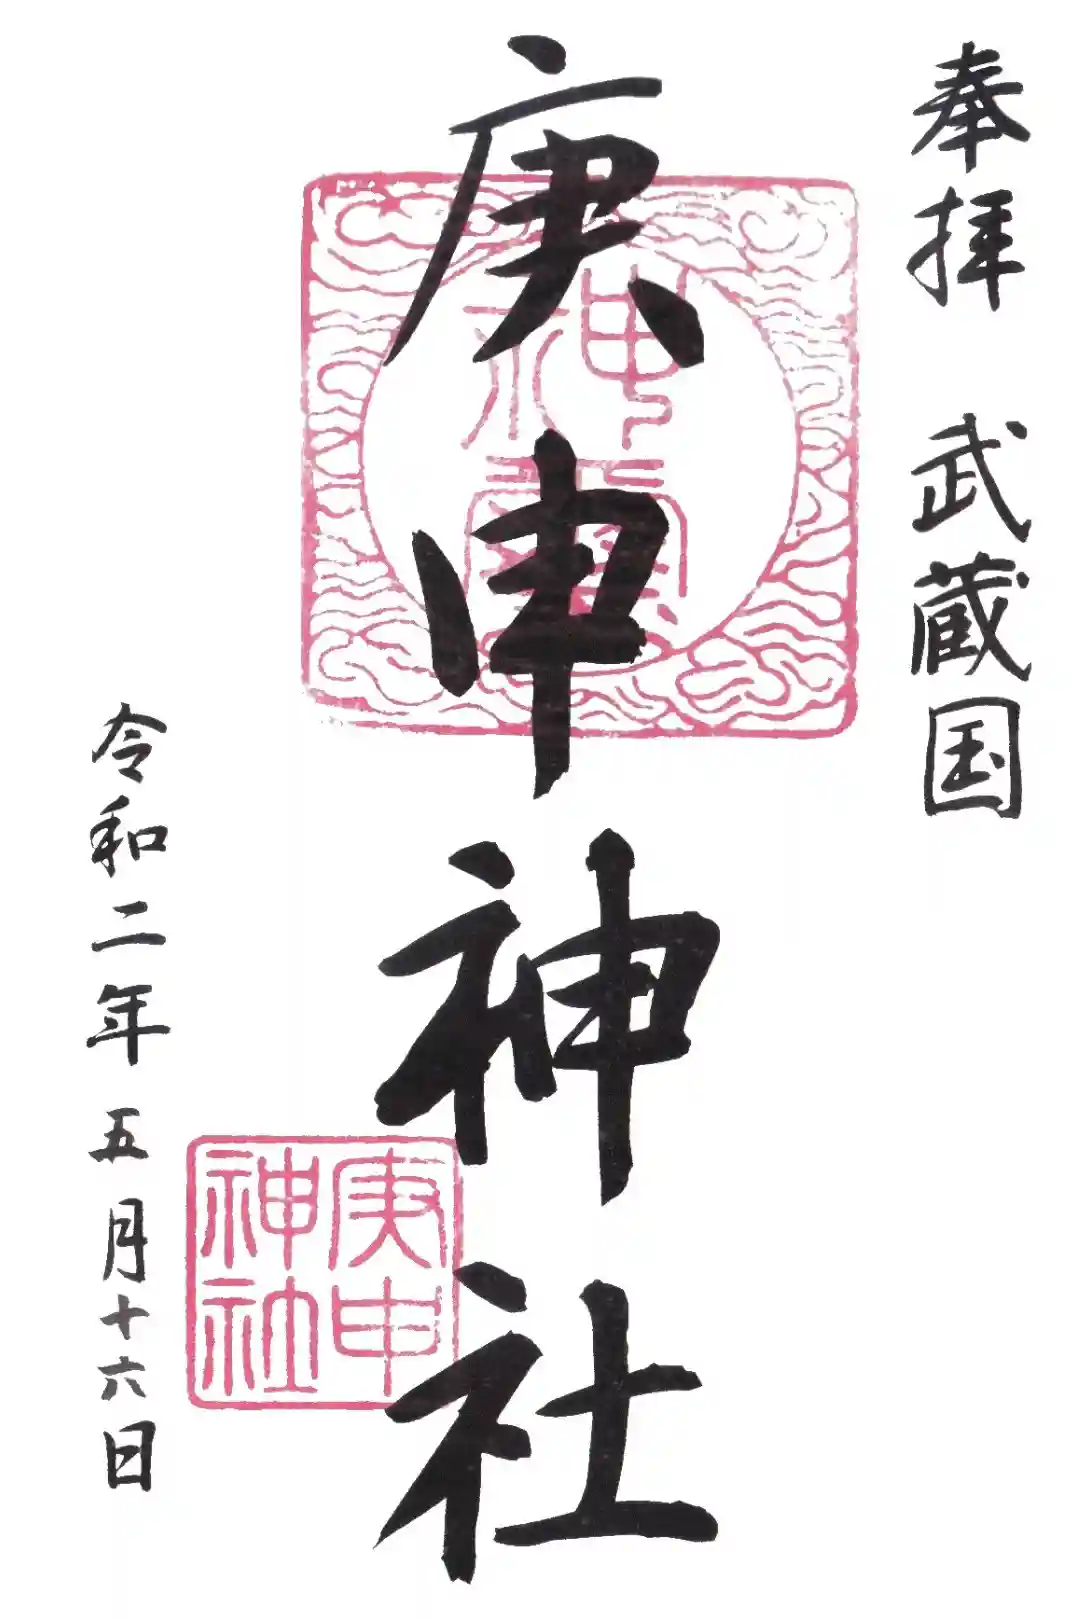 奉拝 武蔵国
庚申神社
令和二年五月十六日
庚申
神社